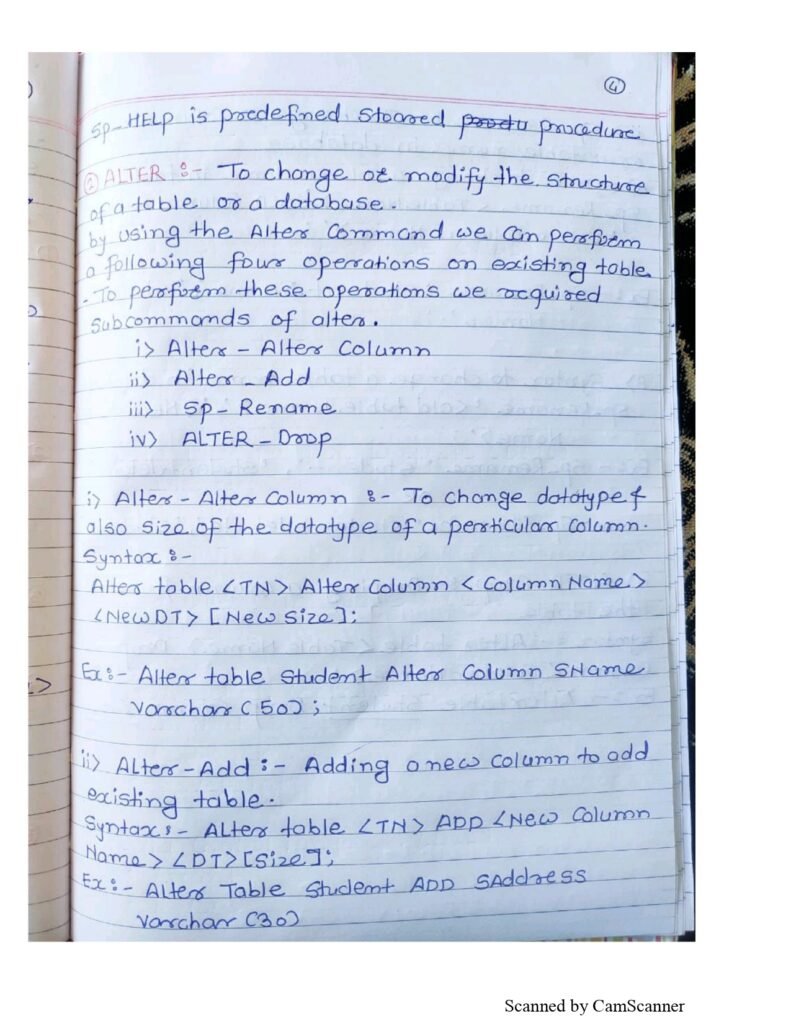 4
Sp-HELP is predefined Stoared procedure
② ALTER :- To change or modify the structure
of a table or a database.
by using the Alter Command we Can perform
a following four operations on existing table
. To perform these operations we required
Subcommands of alter.
i> Alter - Alter Column
ii> Alter - Add
iii> Sp-Rename
iv> ALTER - Drop
i> Alter - Alter Column :- To change datatype &
also size of the datatype of a perticular Column.
Syntax :-
Alter table <TN> Alter Column < Column Name>
<New DT> [New Size];
Ex :- Alter table Student Alter Column SName
Varchar (50);
ii> Alter-Add :- Adding a new column to add
existing table.
Syntax :- Alter table <TN> ADD <New Column
Name> <DT>[Size];
Ex :- Alter Table Student ADD SAddress
Varchar (30)
Scanned by CamScanner